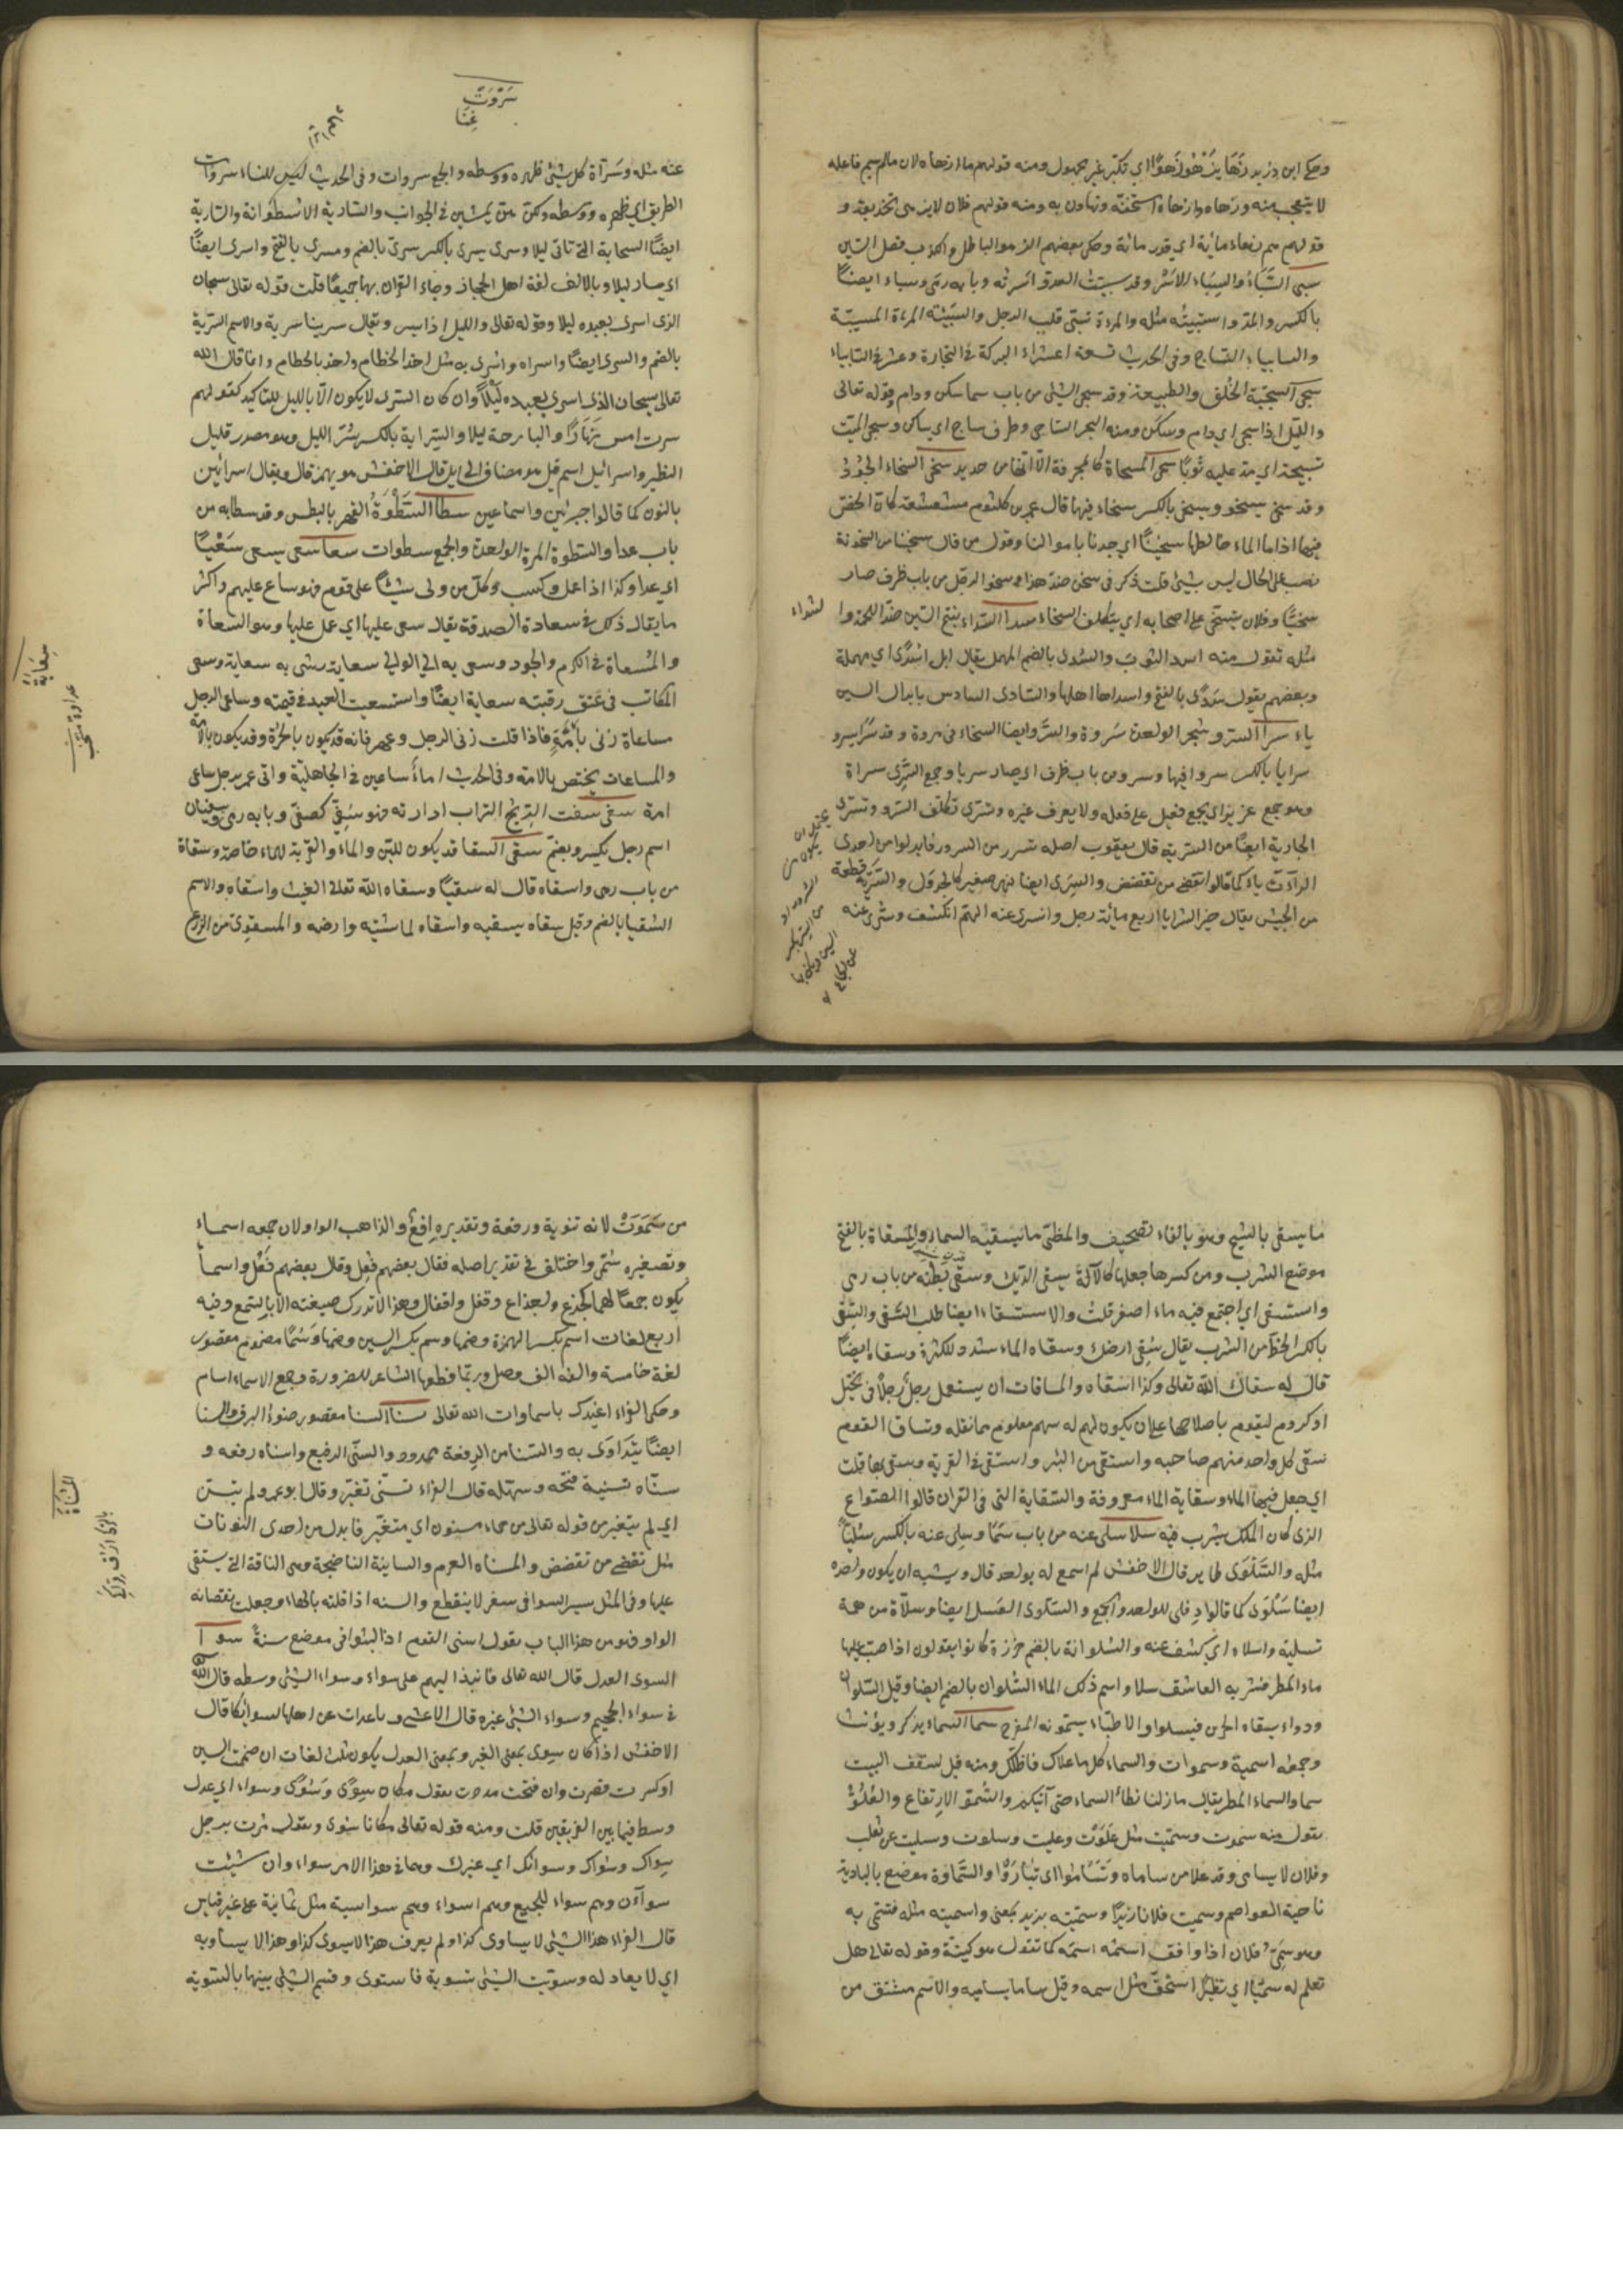 وحكى ابن دريد زها يزهو زهوا اي تكبر غير مجهول ومنه قولهم ما ازهاه لان مالم يسم فاعله
لا يتعجب منه وزهاه وازدهاه استخفه وتهاون به ومنه قولهم فلان لا يزدهى بخديعة و
قولهم هم زهاء مائة اي قدر مائة وحكى بعضهم الزهو الباطل والكذب فصل السين
سبى السَّبْاُ والسِبَاء الاسْر وقد سبيت العدو اسرته وبابه رمى وسباء ايضًا
بالكسر والمد واستبيته مثله والمرءة تسبى قلب الرجل والسبية المرءة المسبية
والسابياء النتاج وفى الحديث تسعة اعشراء البركة فى التجارة وعشر فى السابياء
سجى السجيّة الخُلق والطبيعة وقد سجى الشئ من باب سما سكن ودام وقوله تعالى
والليل اذا سجى اي دام وسكن ومنه البحر الساجى وطرف ساج اي ساكن وسجى الميّت
تسجية اي مد عليه ثوبًا سحى المسحاة كالمجرفة الّا انها من حديد سخى السخاء الجُوْد
وقد سخى يسخو وسخى بالكسر سخاء فيهما قال عمرو بن كلثوم مشعشعة كان الحُصّ
فيها اذا ما الماء خالطها سخينًا اي جدنا باموالنا وقول من قال سخينا من السخونة
نصب على الحال ليس بشئ قلت ذكر فى سخن ضد هذا وسخو الرجل من باب ظرف صار
سخيًّا وفلان يتسخى على اصحابه اي يتكلف السخاء سدا السَّدا بفتح السين ضدّ اللحمة وا
لسداء
مثله تقول منه اسدا الثوب والسُدى بالضم المهمل يقال ابل سُدًى اي مهملة
وبعضهم يقول سَدًى بالفتح واسداها اهملها والسادى السادس بابدال السين
ياء سرا السرو شجر الواحدة سَروة والسَّرو ايضا السخاء فى مروة وقد سَرَا يسرو
سرايا بالكسر سروا فيهما وسرو من باب ظرف اي صار سريا وجمع السَّرِى سراة
وهو جمع عزيز ان يجمع فعيل على فعله ولا يعرف غيره وتسرى تكلف السرو وتسرى
الجارية ايضًا من السرية قال يعقوب اصله تسرر من السرور فابدلوا من احدى
الراآت ياء كما قالوا تقضى من تقضض والسَرِى ايضا نهر صغير كالجدول والسَّرِيَّة قطعة
من الجيش يقال خير السرايا اربع مائة رجل وانسرى عنه الهم انكشف وسُرّى عنه
يحتمل ان
يكون من
السرور او
من السر بكسر
السين ويكنى بها
عن الجماع
سَرَوَتْ
غِنَا
عنه مثله وسَرَاة كل شئ ظهره ووسطه والجمع سروات وفى الحديث ليس للنساء سروات
الطريق اي ظهره ووسطه ولكن يمشين فى الجوانب والسارية الاسطوانة والسارية
ايضًا السحابة التى تاتى ليلا وسرى يسرى بالكسر سُرى بالضم ومسرى بالفتح واسرى ايضًا
اي سار ليلا وبالالف لغة اهل الحجاز وجاء القران بهما جميعًا قلت قوله تعالى سبحان
الذى اسرى بعبده ليلا وقوله تعالى والليل اذا يسر ويقال سرينا سرية والاسم السُّرية
بالضم والسرى ايضًا واسراه واسرى به مثل اخذ الخطام واخذ بالخطام وانما قال الله
تعالى سبحان الذى اسرى بعبده ليْلًا وان كان السرى لا يكون الّا بالليل للتاكيد كقولهم
سرت امس نَهَارًا والبارحة ليلا والسِّراية بالكسر سُرَى الليل وهو مصدر قليل
النظير واسرائيل اسم قيل هو مضاف الى ايل قال الاخفش هو يهمز قال ويقال اسرائين
بالنون كما قالوا جبرئين واسماعين سطا السَّطْوَةُ القهر بالبطش وقد سطا به من
باب عدا والسطوة المرة الواحدة والجمع سطوات سعا سعى يسعى سَعْيًا
اي عدا وكذا اذا عمل وكسب وكل من ولى شيئًا على قوم فهو ساع عليهم واكثر
ما يقال ذلك فى سعادة الصدقة يقال سعى عليها اي عمل عليها وهو السعاة
والمُسعاة فى الكرم والجود وسعى به الى الوالى سعاية وشى به سعاية وسعى
المكاتب فى عتق رقبته سعاية ايضًا واستسعيت العبد فى قيمته وساعى الرجل
مساعاة زنى بامَةٍ فاذا قلت زنى الرجل وعهر فانه قد يكون بالحُرّة وقد يكون بالامَة
والمساعات يختص بالامة وفى الحديث اماءً ساعين فى الجاهلية واتى عمر برجل ساعى
امة سفى سفت الرِيْح التراب اذارته فهو سَفِىّ كصفىّ وبابه رمى وسفيان
اسم رجل يكسر ويضم سقى السقا قد يكون للبن والماء والقربة للماء خاصة وسقاة
من باب رمى واسقاه قال له سقيًا وسقاه الله تعالى الغيث واسقاه والاسم
السُّقيا بالضم وقيل سقاه يسقيه واسقاه لماشيته وارضه والمسقوى من الزرع
سِعَايَةً
ما يسقى بالسيح وهو بالفاء تصحيف والمظمى ما تسقيه السماء والمسقاة بالفتح
موضع الشرب ومن كسرها جعلها كالآلة يسقى الديك وسقى بَطْنُه من باب رمى
واستسقى اي اجتمع فيه ماء اصفر قلت والاستسقاء ايضا طلب السَّقى والسِّقى
بالكسر الحظ من الشرب يقال سُقِى ارضك وسقّاه الماء شدد للكثرة وسقاه ايضًا
قال له سقاك الله تعالى وكذا اسقاه والمساقات ان يستعمل رجلٌ رجلًا فى نخيل
او كروم ليقوم باصلاحها على ان يكون لهم له سهم معلوم مما تغله وتساق القوم
سقى كل واحد منهم صاحبه واستقى من البئر واستقى فى القربة وسقى بها قلت
اي جعل فيها الماء وسقاية الماء معروفة والسقاية التى فى القران قالوا الصُواع
الذى كان الملك يشرب فيه سلا سلى عنه من باب سَمَا وسلى عنه بالكسر سُلِيًّا
مثله والسَّلْوَى طاير قال الاخفش لم اسمع له بواحد قال ويشبه ان يكون واحده
ايضا سَلْوَى كما قالوا دِفلى للواحد والجمع والسلوى العَسل ايضا وسلاّه من همه
تسلية واسلاه اي كشف عنه والسلوانة بالضم خرزة كانوا يقولون اذا صب عليها
ماء المطر فشربه العاشق سلا واسم ذلك الماء السُّلوان بالضم ايضا وقيل السلوان
دواء يسقاه الحزين فيسلوا والاطبّاء يسمّونه المفرح سما السماء يذكر ويؤنث
وجمعه اسمية وسموات والسماء كل ما علاك فاظلك ومنه قيل لسقف البيت
سما والسماء المطر يقال ما زلنا نطاُ السماء حتى آتيكم والسُّموّ الارتفاع والعُلُوُّ
يقول منه سموت وسميت مثل عَلَوْت وعليت وسلوت وسليت عن ثعلب
وفلان لا يسامى وقد علا من ساماه وتَسَامُوا اي تَبَارَوْا والسَّماوة موضع بالبادية
ناحية العواصم وسميت فلانا زيدًا وسميته بزيد بمعنى واسميته مثله فتسمى به
وهو سَمِىّ فلان اذا وافق اسمه اسمه كما تقول هو كنيّه وقوله تعالى هل
تعلم له سميًّا اي نظيرًا استحق مثل اسمه وقيل مساما يساميه والاسم مشتق من
من سَمَوَتْ لانه تنوية ورفعة وتقديره اِفعٌ والذاهب الواو لان جمعه اسماء
وتصغيره سُمّى واختلف فى تقدير اصله فقال بعضهم فِعْل وقال بعضهم فُعْل واسماءٌ
يكون جمعًا لهما كجذع واجذاع وقفل واقفال وهذا لا تدرك صيغته الا بالسّمع وفيه
اربع لغات اسم بكسر الهمزة وضمها وسم بكسر السين وضمها وسُمًا مضموم مقصور
لغة خامسة والفه الف وصل وربّما قطعها الشاعر للضرورة وجمع الاسماء اسام
وحكى الفراء اعيذك باسماوات الله تعالى سنا السنا مقصور ضوءُ البرق والسنا
ايضًا يتداوى به والسناء من الرفعة ممدود والسنّى الرفيع واسناه رفعه و
سنّاه تسنية فتحه وسهله قال الفراء تسنّى تغيّر وقال ابو عمرو لم يتسن
اي لم يتغير من قوله تعالى من حماء مسنون اي متغيّر فابدل من احدى النونات
مثل تقضى من تقضض والمسناه العرم والسانية الناضحة وهى الناقة التى يستقى
عليها وفى المثل سير السوانى سفر لا ينقطع والسنه اذا قلته بالهاء وجعلت نقصانه
الواو فهو من هذا الباب يقول اسنى القوم اذا لبثوا فى موضع سنةً سوا
السوى العدل قال الله تعالى فانبذ اليهم على سواء وسواء الشئ وسطه قال اللّه
فى سواء الجحيم وسواء الشئ غيره قال الاعشى وما عدلت عن اهلها لسوائكا قال
الاخفش اذا كان سِوى بمعنى الغير وبمعنى العدل يكون ثلث لغات ان ضممت السين
او كسرت قصرت وان فتحت مددت يقول مكان سِوًى وسُوًى وسواء اي عدل
وسط فيما بين الفريقين قلت ومنه قوله تعالى مكانا سُوى ويقول مررت برجل
سِواك وسُواك وسوائك اي غيرك وهما فى هذا الامر سواء وان شئت
سوآن وهم سواء للجميع وهم اسواء وهم سواسية مثل ثمانية على غير قياس
قال الفراء هذا الشئ لا يساوى كذا ولم يعرف هذا لا يسوى كذا وهذا لا يساويه
اي لا يعادله وسويت الشئ تسوية فاستوى وقسم الشئ بينهما بالسوية